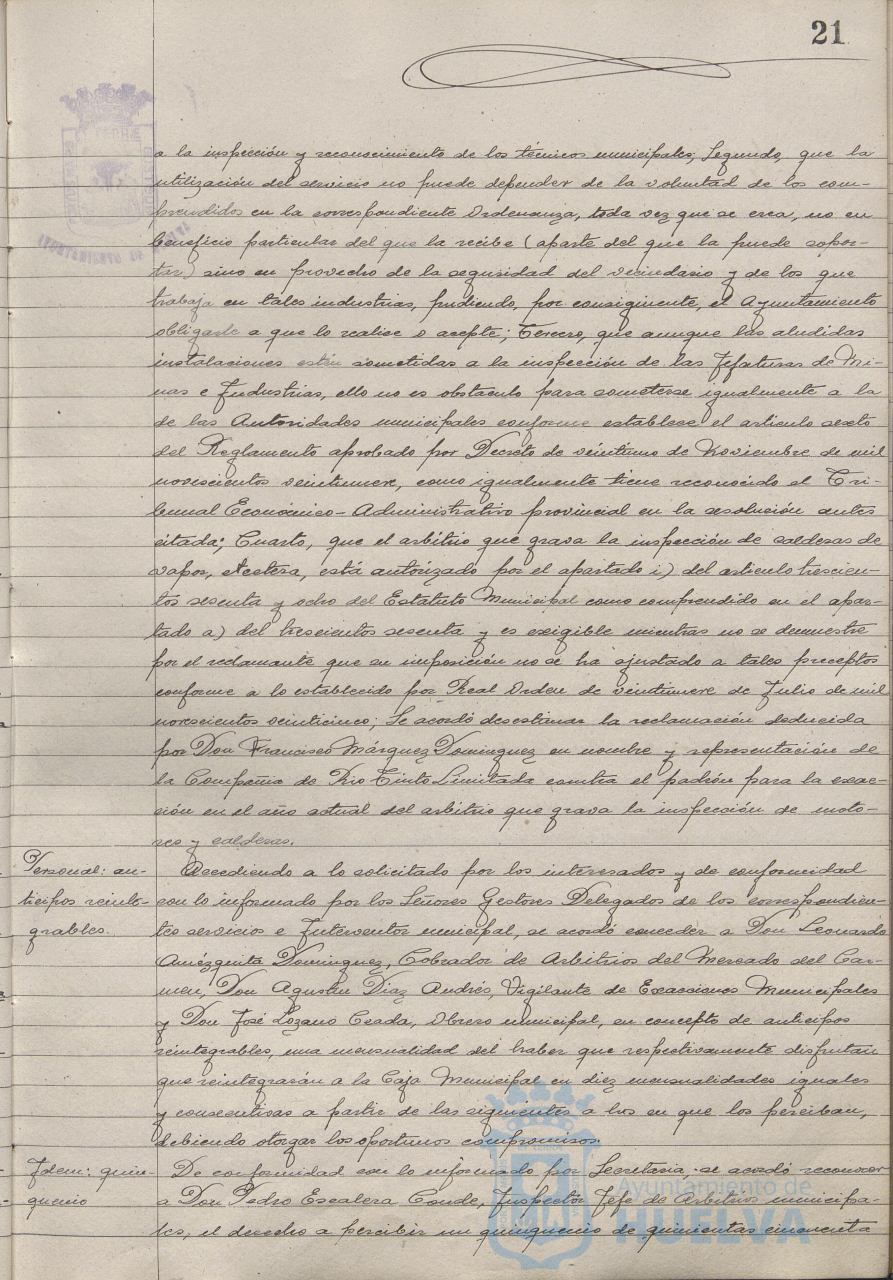 21
a la inspección y reconocimiento de los técnicos municipales; Segundo, que la
utilización del servicio no puede depender de la voluntad de los com-
prendidos en la correspondiente Ordenanza, toda vez que se crea, no en
beneficio particular del que la recibe (aparte del que la puede sopor-
tar) sino en provecho de la seguridad del vecindario y de los que
trabaja en tales industrias, pudiendo, por consiguiente, el Ayuntamiento
obligarle a que lo realice o acepte; Tercero, que aunque las aludidas
instalaciones estén sometidas a la inspección de las Jefaturas de Mi-
nas e Industrias, ello no es obstáculo para someterse igualmente a la
de las Autoridades municipales conforme establece el artículo sexto
del Reglamento aprobado por Decreto de veintiuno de Noviembre de mil
novecientos veintinueve, como igualmente tiene reconocido el Tri-
bunal Económico-Administrativo provincial en la resolución antes
citada; Cuarto, que el arbitrio que grava la inspección de calderas de
vapor, etcétera, está autorizado por el apartado i) del artículo trescien-
tos sesenta y ocho del Estatuto Municipal como comprendido en el apar-
tado a) del trescientos sesenta y es exigible mientras no se demuestre
por el reclamante que su imposición no se ha ajustado a tales preceptos
conforme a lo establecido por Real Orden de veintinueve de Julio de mil
novecientos veinticinco; Se acordó desestimar la reclamación deducida
por Don Francisco Márquez Dominguez en nombre y representación de
la Compañia de Rio Tinto Limitada contra el padrón para la exac-
ción en el año actual del arbitrio que grava la inspección de moto-
res y calderas.
Personal: an-
ticipos reinte-
grables.
Accediendo a lo solicitado por los interesados y de conformidad
con lo informado por los Señores Gestores Delegados de los correspondien-
tes servicios e Interventor municipal, se acordó conceder a Don Leonardo
Amézquita Dominguez, Cobrador de Arbitrios del Mercado del Car-
men, Don Agustín Diaz Andrés, Vigilante de Exacciones Municipales
y Don José Lozano Ceada, Obrero municipal, en concepto de anticipos
reintegrables, una mensualidad del haber que respectivamente disfrutan
que reintegrarán a la Caja Municipal en diez mensualidades iguales
y consecutivas a partir de las siguientes a los en que los perciban,
debiendo otorgar los oportunos compromisos.
Idem: quin-
quenio
De conformidad con lo informado por Secretaria se acordó reconocer
a Don Pedro Escalera Conde, Inspector Jefe de Arbitrios municipa-
les, el derecho a percibir un quinquenio de quinientas cincuenta
Ayuntamiento de
HUELVA